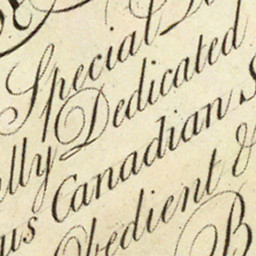 Special
lly Dedicated
us Canadian S
Obedient &
B